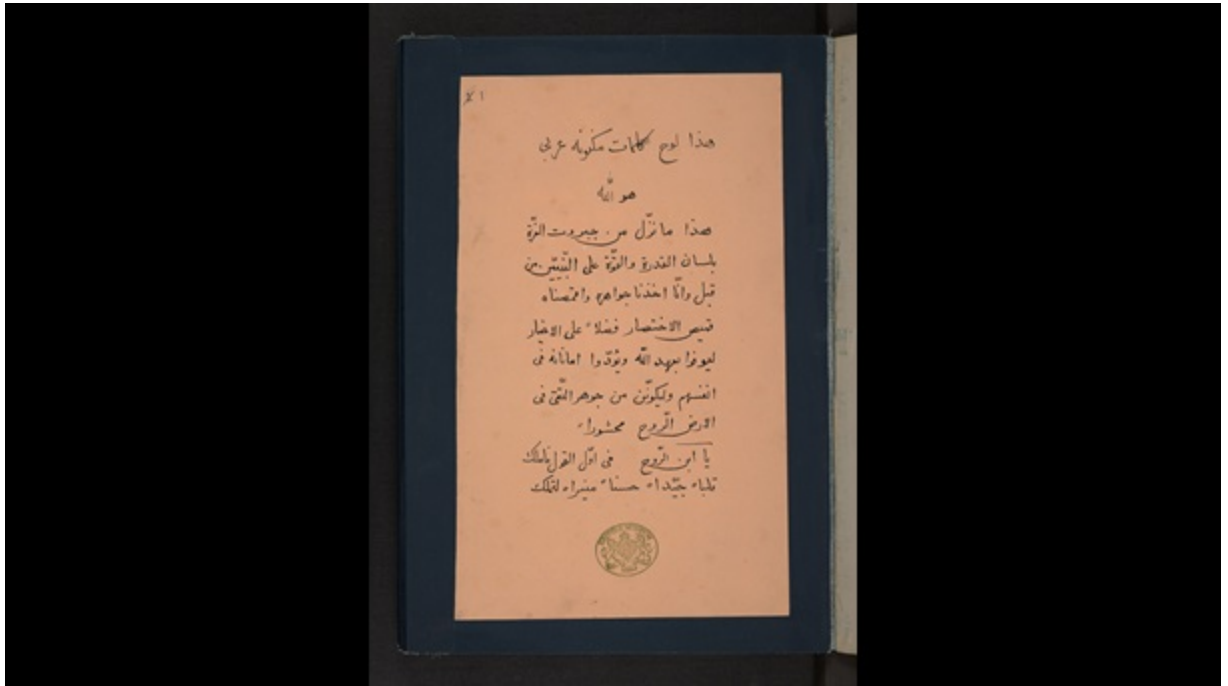 ١
هذا لوح كلمات مكنونه عربى
هو الله
هذا ما نزّل من جبروت العزّة
بلسان القدرة والقوّة على النّبيّين من
قبل وانّا اخذنا جواهره واقمصناه
قميص الاختصار فضلاً على الاخيار
ليوفوا بعهد الله ويؤدّوا اماناته فى
انفسهم وليكوننّ من جوهر التّقى فى
الارض الرّوح محشوراً
يا ابن الرّوح فى اوّل القول فاملك
قلباً جيّداً حسناً منيراً لتملك